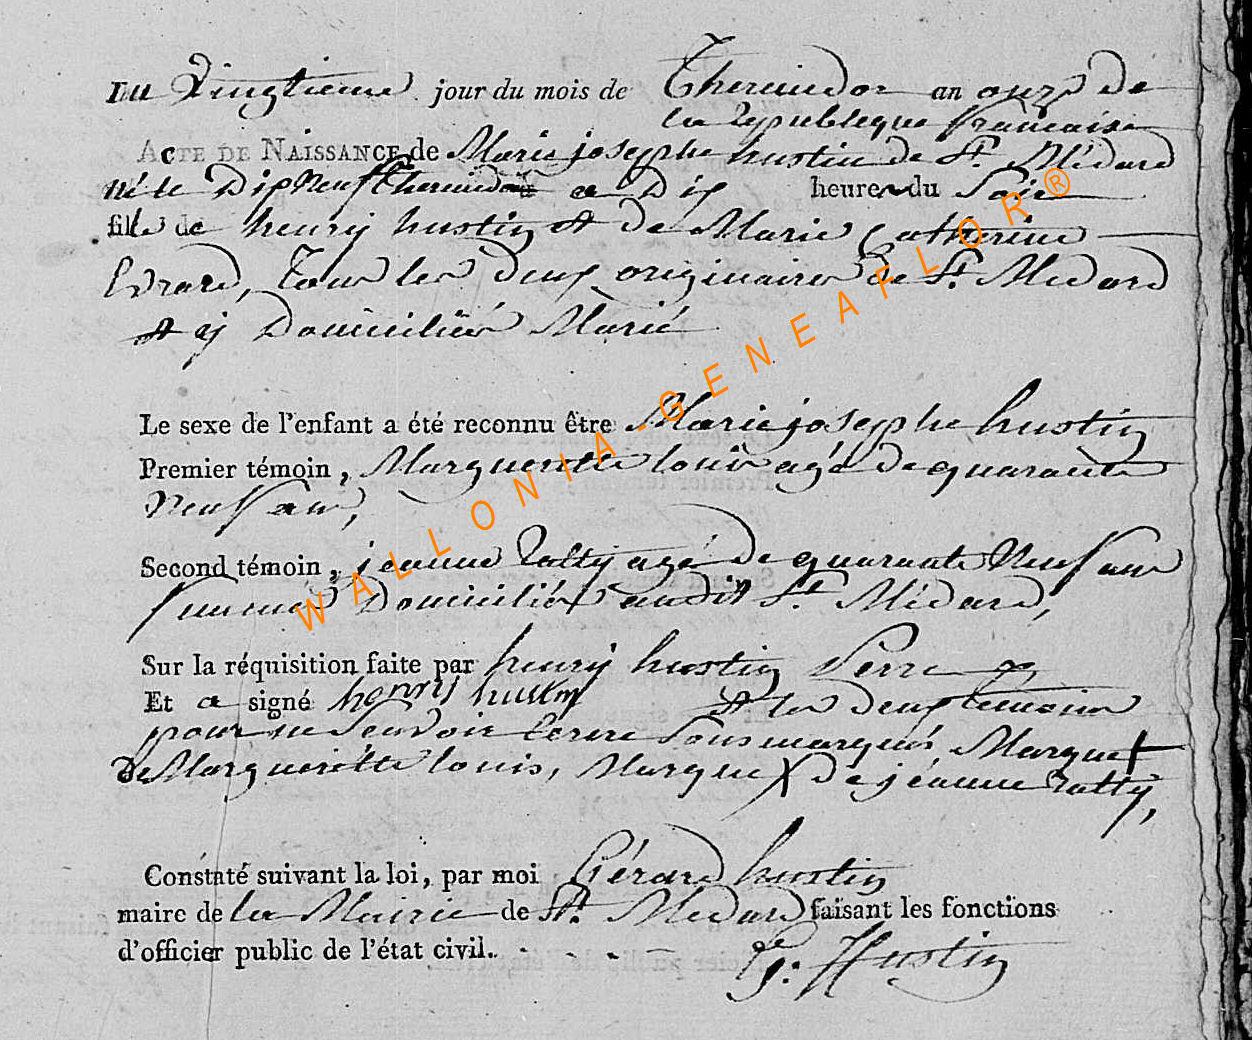 Du Vingtieme jour du mois de Thermidor an onze de
la Republeque francaise
ACTE DE NAISSANCE de Marie josephe hustin de St. Médard
née le Dix Neuf thermidor a Dix heures du Soir
fille de henrij hustin et de Marie Catherine
Evrard, Tous les deux originaires de St. Medard
et ij Domiciliés Marié
Le sexe de l'enfant a été reconnu être Marie josephe hustin
Premier témoin, Margueritte louis agée de quarante
Neuf ans,
Second témoin, jeanne Ratty agé de quarante Neuf ans
Domiciliés audit St. Médard,
Sur la réquisition faite par henrij hustin Perre
Et a signé henrij hustin et les deux temoins
pour ne Scavoir Ecrire Sous marqués, Marque +
De Margueritte louis, Marque X de jéanne Ratty,
Constaté suivant la loi, par moi Gérard hustin
maire de la Mairie de St. Medard faisant les fonctions
d'officier public de l'état civil.
G: Hustin
WALLONIA-GENEAFLOR®